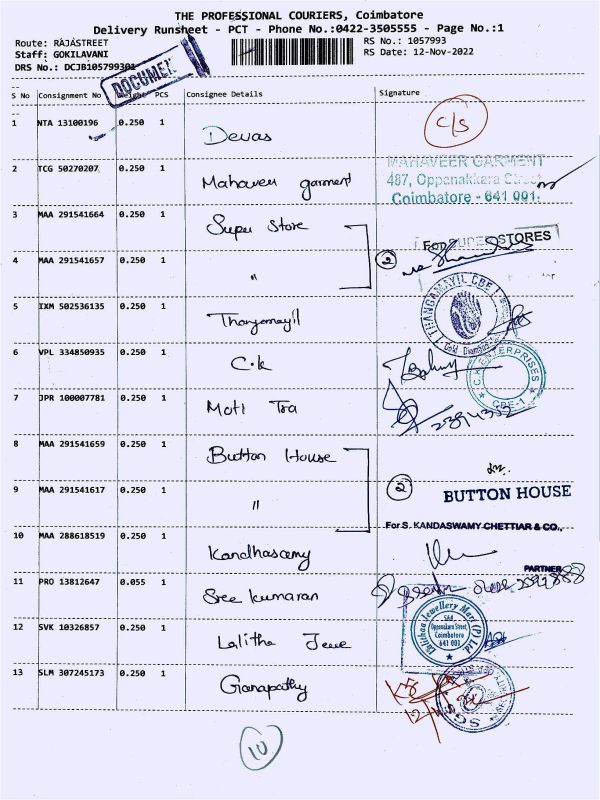 THE PROFESSIONAL COURIERS, Coimbatore
Delivery Runsheet - PCT - Phone No.:0422-3505555 - Page No.:1
Route: RAJASTREET
RS No.: 1057993
Staff: GOKILAVANI
RS Date: 12-Nov-2022
DRS No.: DCJB105799301
DOCUMEN
S No Consignment No Weight PCS Consignee Details Signature
1 NTA 13100196 0.250 1 Devas C/S
2 TCG 50270207 0.250 1 Mahaveer garment
MAHAVEER GARMENT
487, Oppanakkara Street
Coimbatore - 641 001.
3 MAA 291541664 0.250 1 Super Store
For SUPER STORES
4 MAA 291541657 0.250 1 " 2
5 IXM 502536135 0.250 1 Thangamayil
THANGAMAYIL CBE-1
6 VPL 334850935 0.250 1 C.K
C.K. ENTERPRISES
CBE-1
7 JPR 100007781 0.250 1 Moti Tra
8 MAA 291541659 0.250 1 Button House
9 MAA 291541617 0.250 1 " 2
BUTTON HOUSE
For S. KANDASWAMY CHETTIAR & CO.,
10 MAA 288618519 0.250 1 Kandhasamy
PARTNER
11 PRO 13812647 0.055 1 Sree Kumaran
12 SVK 10326857 0.250 1 Lalitha Jewe
Lalithaa Jewellery Mart (P) Ltd
Oppanakara Street,
Coimbatore
641 001
13 SLM 307245173 0.250 1 Ganapathy
10